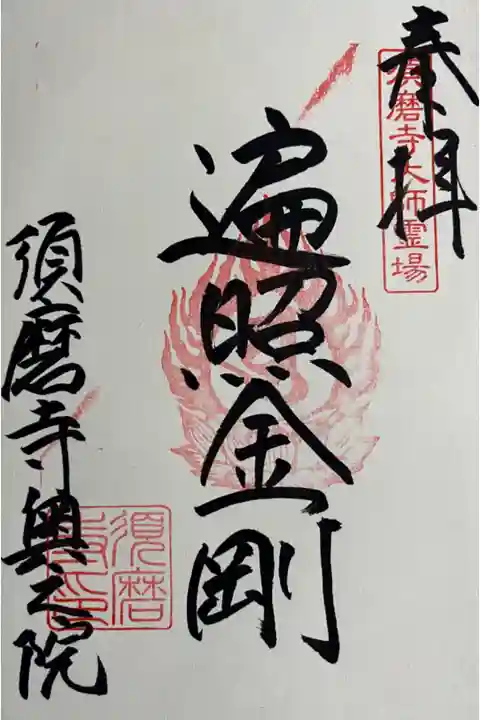 奉拝
須磨寺大師霊場
遍照金剛
須磨寺奥之院
須磨